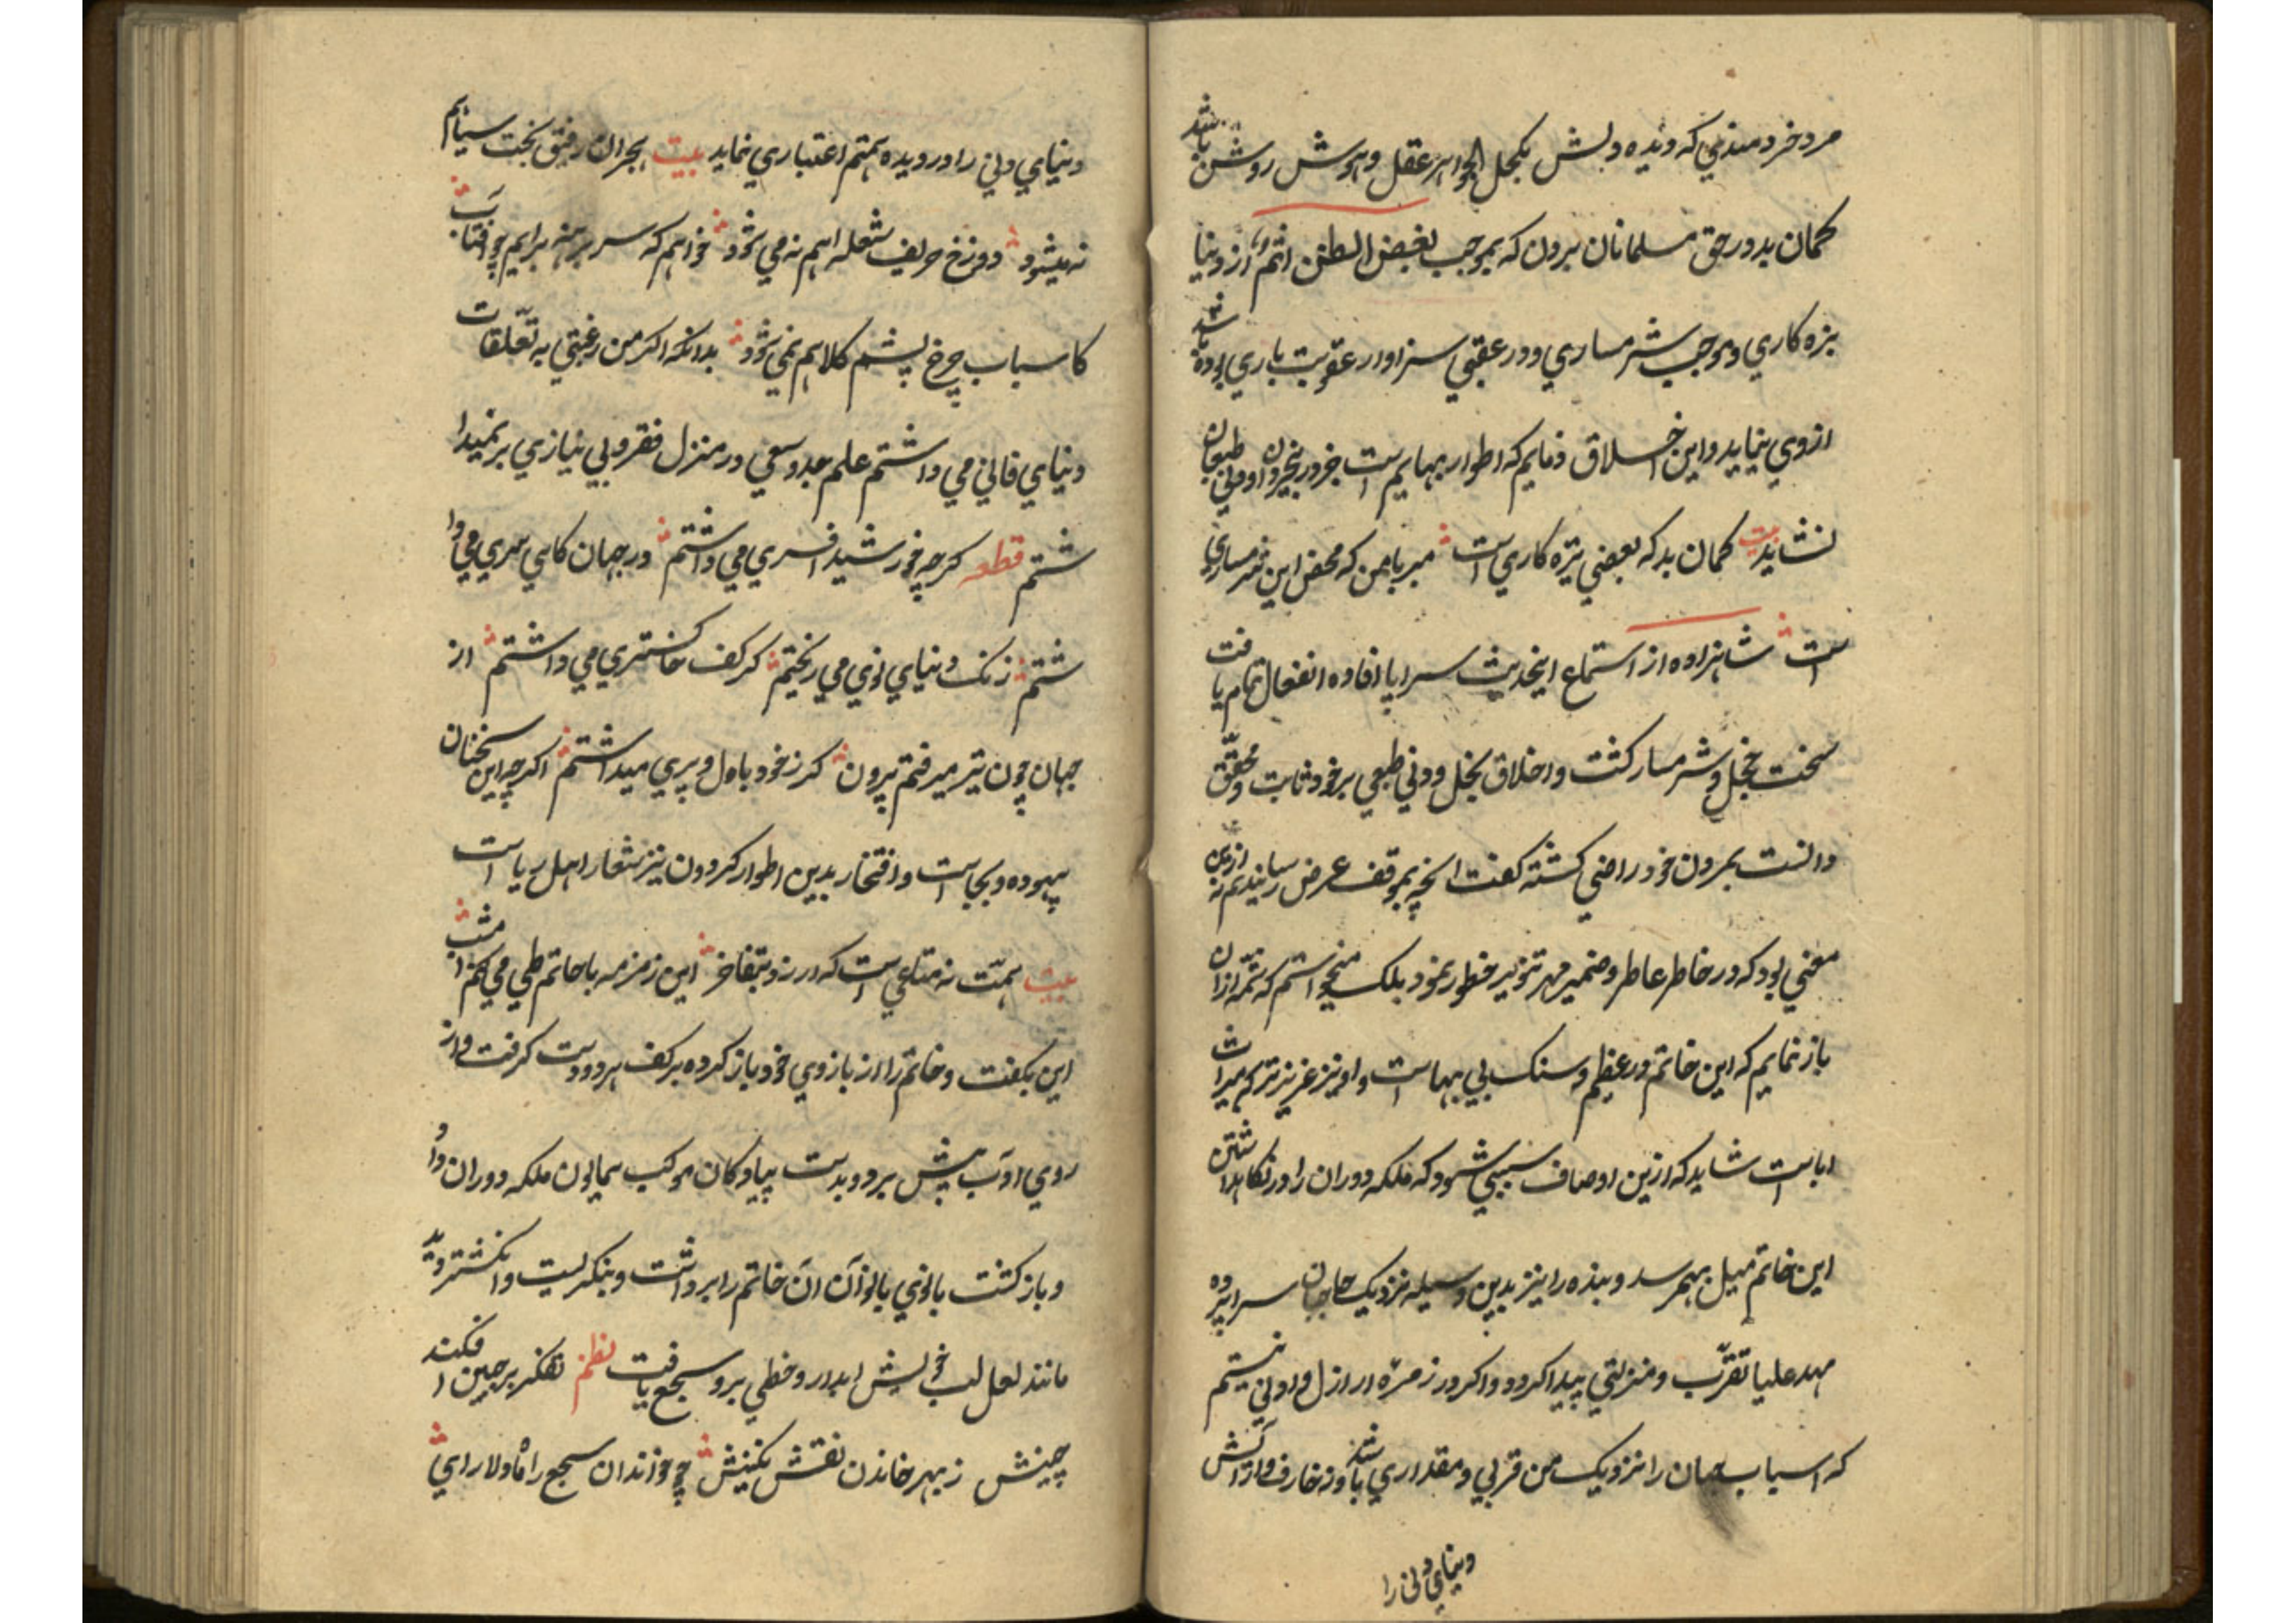 مرد خردمندی که دیده دلش بکحل الجواهر عقل و هوش روشن باشد
کمان بد در حق مسلمانان بردن که بموجب بعض الظن اثم از دنیا
بزه کاری و موجب شرمساری و در عقبی سزاوار عقوبت باری بوده باشد
ازوی نیاید و این اخلاق ذمایم که اطوار بهایم است جز در بیخردان و دنی طبعان
نشاید بیت کمان بد که بعضی بزه کاری است مبر با من که محض این شرمساری
است شاهزاده از استماع اینحدیث سراپا افاده انفعال تمام یافت
سخت خجل و شرمسار کشت و اخلاق بخل و دنی طبعی بر خود ثابت و محقق
دانست بمردن خود راضی کشته کفت انچه بموقف عرض رسانیدم نه ازین
معنی بود که در خاطر عاطر و ضمیر مهر تنویر خطور نمود بلک میخواستم که شمه ازان
باز نمایم که این خاتم در عظیم و سنک بی بهاست و او نیز عزیزترکم میراث
اباست شاید که ازین اوصاف سببی شود که ملکه دوران را در نکاهداشتن
این خاتم میل بهمرسد و بنده را نیز بدین وسیله نزدیک حاجبان سراپرده
مهد علیا تقرّب و منزلتی پیدا کردد و اکر در زمره ارازل و ادنی نیستم
که اسباب جهان را نزدیک من قربی و مقداری باشد و زخارف و ارایش
دنیای دنی را
دنیای دنی را در دیده همتم اعتباری نماید بیت بجران رفیق بخت سیاهم
نه میشود دوزخ حریف شعله اهم نه می شود خواهم که سر برهنه برایم چو افتاب
کاسباب چرخ پشم کلاهم نمی شود بدانکه اکر من رغبتی به تعلّقات
دنیای فانی می داشتم علم جد و سعی در منزل فقر و بی نیازی بر نمیدا
شتم قطعه کرچه خورشید افسری می داشتم در جهان کاسی سری می دا
شتم زنک دنیای دنی می ریختم کر کف خاکستری می داشتم از
جهان چون تیر میرفتم برون کر ز خود بال و پری میداشتم اکرچه این سخنان
بیهوده و بیجاست و افتخار بدین اطوار کردون نیز شعار اهل ریاست
بیت همّت نه متاعی است که در زد بتفاخر این زمزمه با حاتم طی می کنم امشب
این بکفت و خاتم را از بازوی خود باز کرده بر کف هر دو دست کرفت و از
روی ادب پیش برد و بدست پیادکان موکب همایون ملکه دوران داد
و باز کشت بانوی بانوان ان خاتم را برداشت و بنکریست و انکشتر دید
مانند لعل لب خویش ابدار و خطی برو سجع یافت نظم تفکر بر جبین افکند
چینش ز بهر خاندن نقش نکینش چو خواندان سجع را ماه دلارای